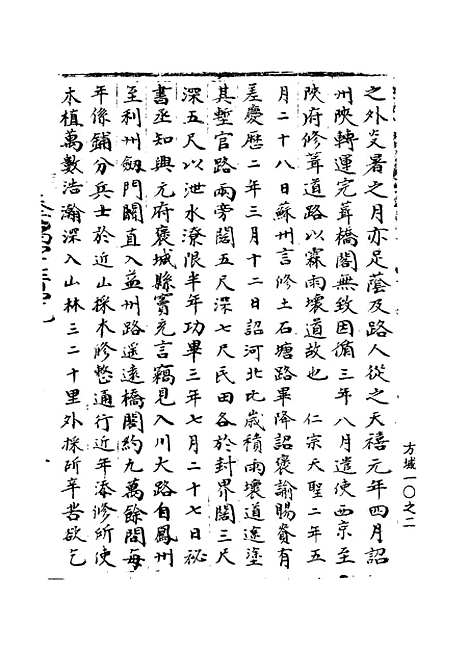 之外炎暑之月亦足蔭及路人從之天禧元年四月詔
州陝轉運完葺橋閣無致因循三年八月遣使西京至
陝府修葺道路以霖雨壞道故也　仁宗天聖二年五
月二十八日蘇州言修土石塘路畢降詔褒諭賜賚有
差慶歷二年三月十二日詔河北比歲積雨壞道途塗
其塹官路兩旁闊五尺深七尺民田各於封界闊三尺
深五尺以泄水潦限半年功畢三年七月二十七日祕
書丞知興元府褒城縣竇充言竊見入川大路自鳳州
至利州劔門關直入益州路遥遠橋閣約九萬餘間每
年係鋪分兵士於近山採木修整通行近年添修所使
木植萬數浩瀚深入山林三二十里外採斫辛苦欲乞
方域一〇之二